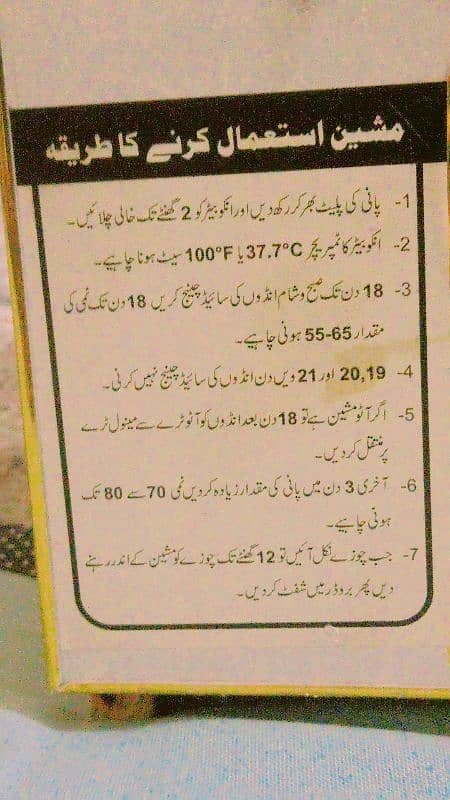 مشین استعمال کرنے کا طریقہ
1- پانی کی پلیٹ بھر کر رکھ دیں اور انکوبیٹر کو 2 گھنٹے تک خالی چلائیں۔
2- انکوبیٹر کا ٹمپریچر 37.7°C یا 100°F سیٹ ہونا چاہیے۔
3- 18 دن تک صبح و شام انڈوں کی سائیڈ چینج کریں 18 دن تک نمی کی
مقدار 55-65 ہونی چاہیے۔
4- 20,19 اور 21 ویں دن انڈوں کی سائیڈ چینج نہیں کرنی۔
5- اگر آٹو مشین ہے تو 18 دن بعد انڈوں کو آٹو ٹرے سے مینول ٹرے
پر منتقل کر دیں۔
6- آخری 3 دن میں پانی کی مقدار زیادہ کر دیں نمی 70 سے 80 تک
ہونی چاہیے۔
7- جب چوزے نکل آئیں تو 12 گھنٹے تک چوزے کو مشین کے اندر رہنے
دیں پھر بروڈر میں شفٹ کر دیں۔